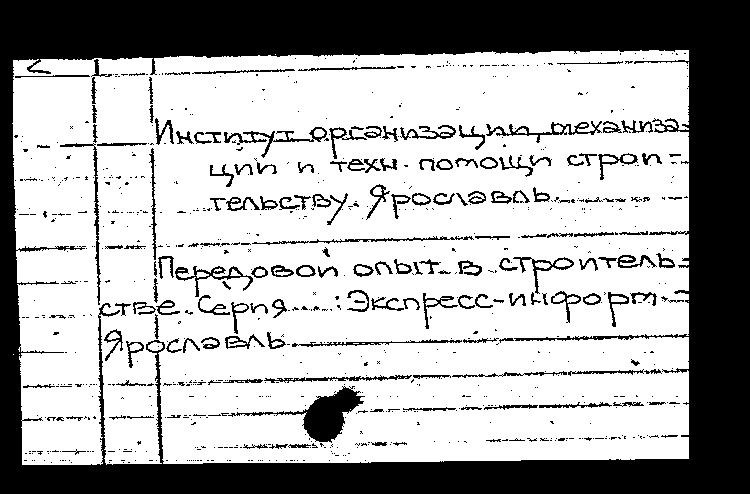 Институт организации, механиза-
ции и техн. помощи строи-
тельству. Ярославль.
Передовой опыт в строитель-
стве. Серия ....: Экспресс-информ. -
Ярославль